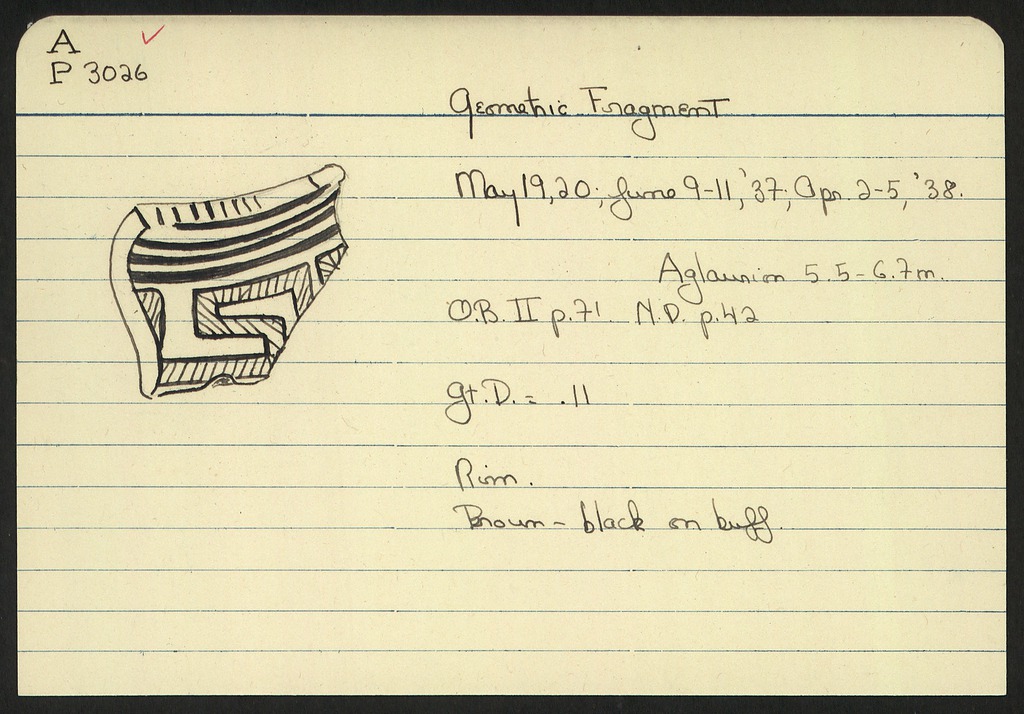 A
P 3026
Geometric Fragment
May 19, 20; June 9-11, '37; Apr. 2-5, '38.
Aglaurion 5.5-6.7m.
O.B. II p.71 N.D. p.42
Gt.D. = .11
Rim.
Brown-black on buff.